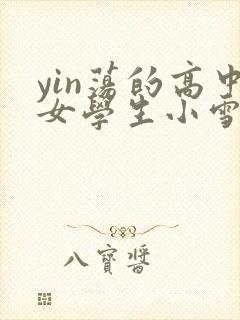 yin蕩的高中
女學生小雪
八寶醬